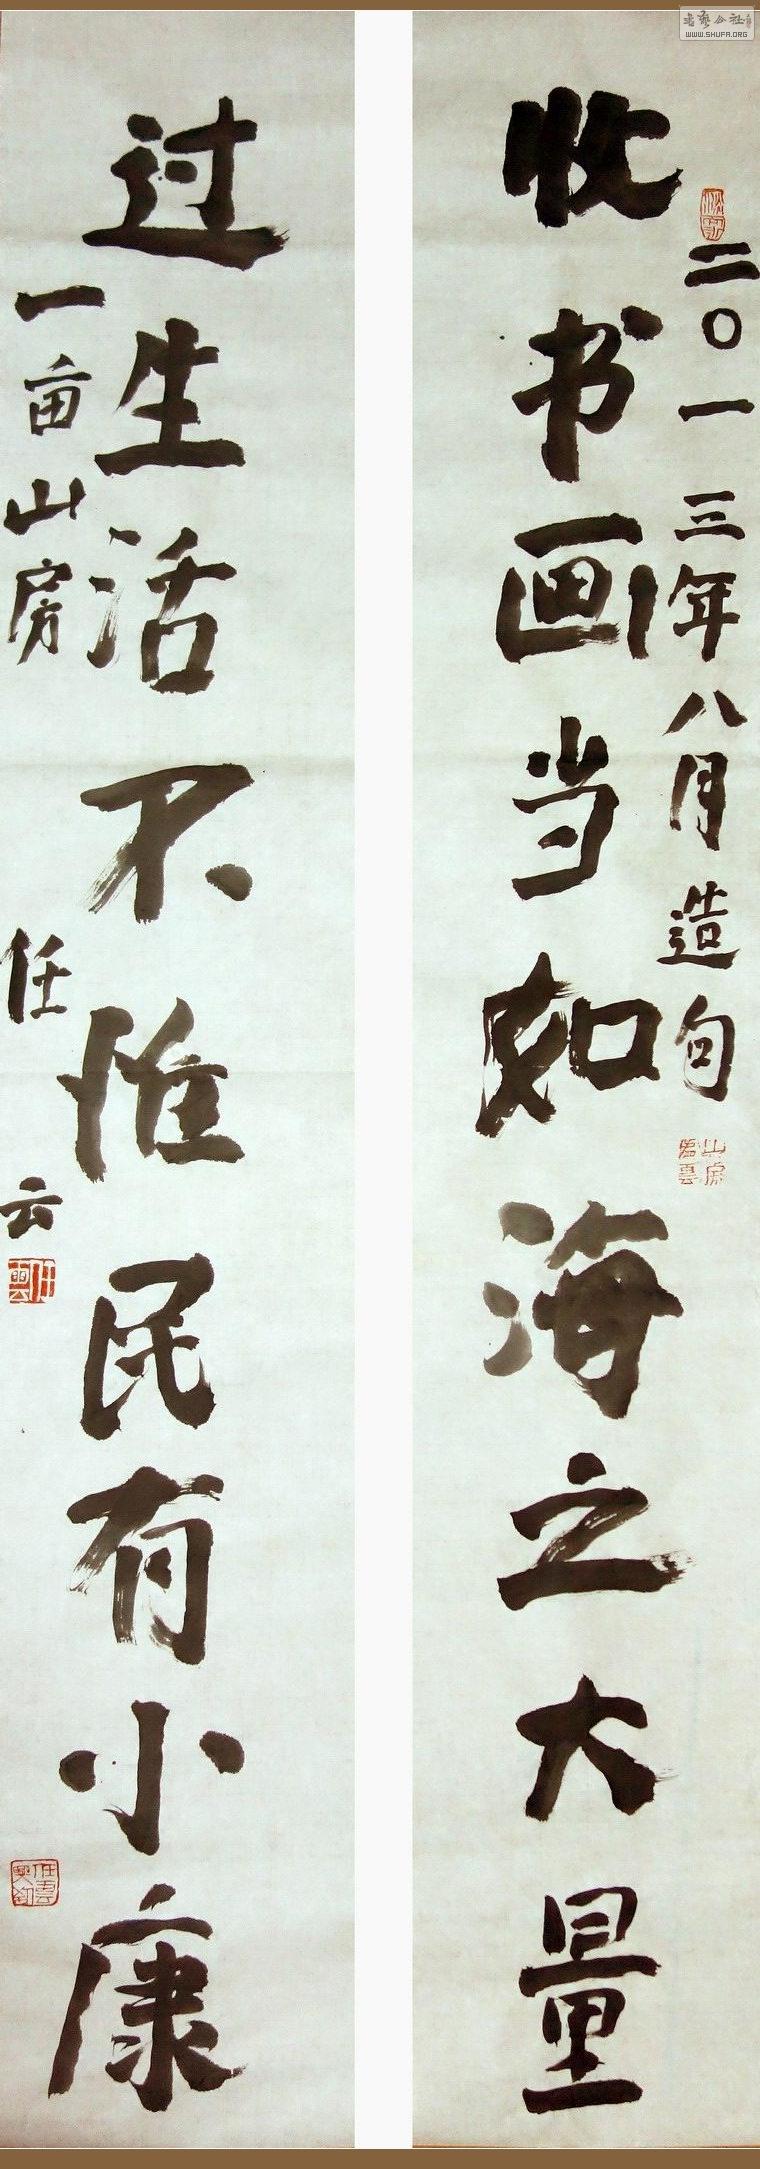 收书画当如海之大量
二〇一三年八月造句
过生活不惟民有小康
一亩山房
任云
书艺公社
WWW.SHUFA.ORG